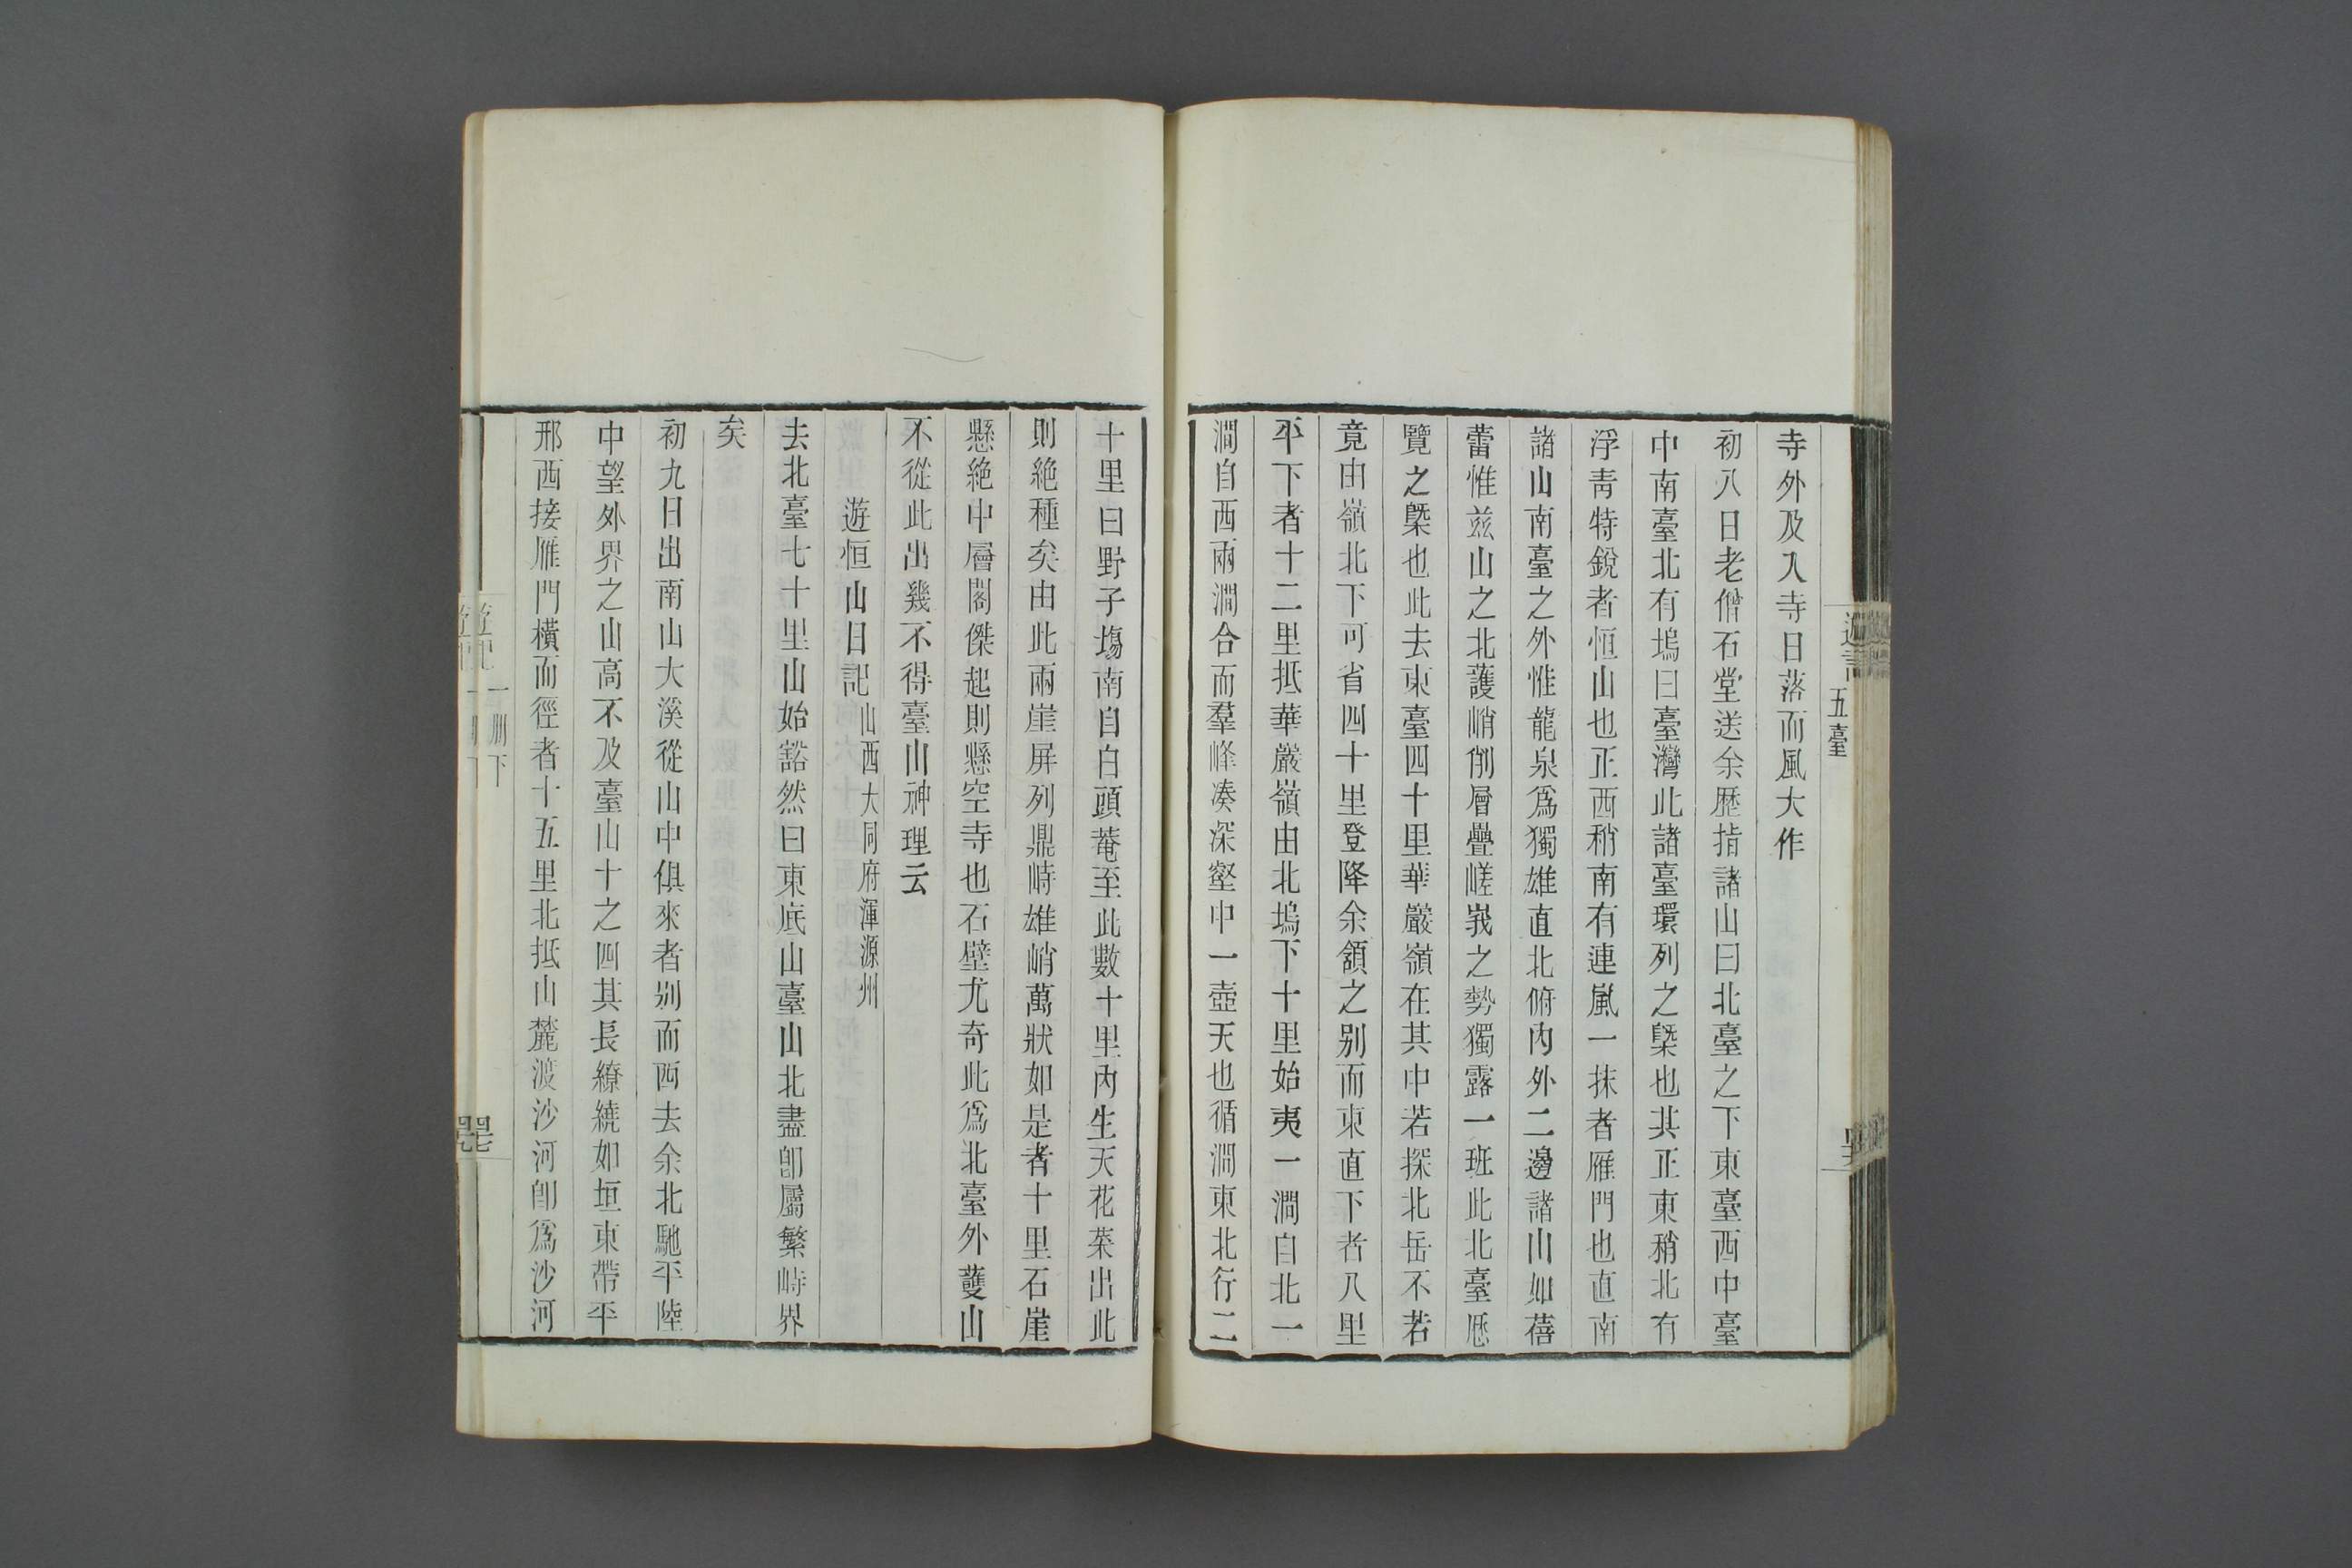 寺外及入寺日落而風大作
初八日老僧石堂送余歷指諸山曰北臺之下東臺西中臺
中南臺北有塢曰臺灣此諸臺環列之槩也其正東稍北有
浮青特銳者恒山也正西稍南有連嵐一抹者雁門也直南
諸山南臺之外惟龍泉爲獨雄直北俯內外二邊諸山如蓓
蕾惟茲山之北護峭削層疊嵯峩之勢獨露一班此北臺歷
覽之槩也此去東臺四十里華嚴嶺在其中若探北岳不若
竟由嶺北下可省四十里登降余頷之别而東直下者八里
平下者十二里抵華嚴嶺由北塢下十里始夷一澗自北一
澗自西兩澗合而羣峰湊深壑中一壺天也循澗東北行二
五臺
十里曰野子塲南自白頭菴至此數十里內生天花菜出此
則絶種矣由此兩崖屏列鼎峙雄峭萬狀如是者十里石崖
懸絶中層閣傑起則懸空寺也石壁尤奇此爲北臺外護山
不從此出幾不得臺山神理云
遊恒山日記山西大同府渾源州
去北臺七十里山始豁然曰東底山臺山北盡卽屬繁峙界
矣
初九日出南山大溪從山中俱來者别而西去余北馳平陸
中望外界之山高不及臺山十之四其長繚繞如垣東帶平
邢西接雁門橫而徑者十五里北抵山麓渡沙河卽爲沙河
一册下